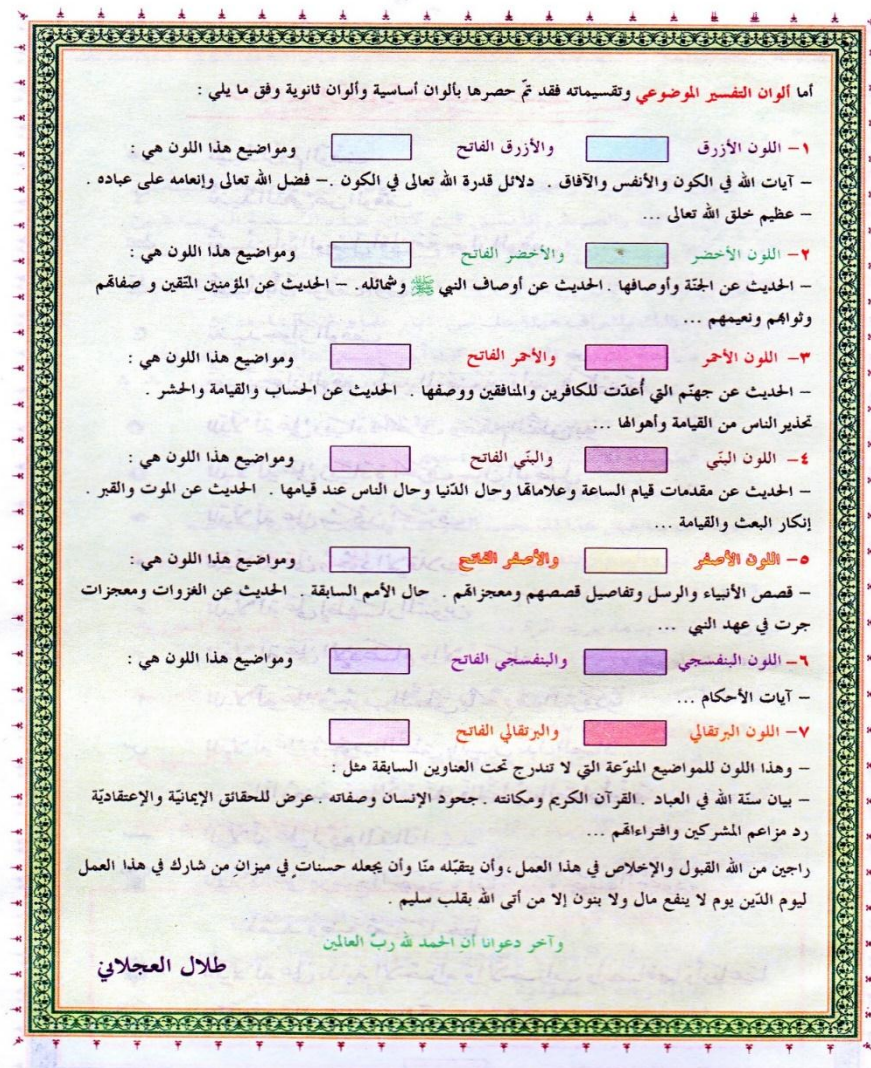 أما ألوان التفسير الموضوعي وتقسيماته فقد تمّ حصرها بألوان أساسية وألوان ثانوية وفق ما يلي :
١- اللون الأزرق والأزرق الفاتح ومواضيع هذا اللون هي :
– آيات الله في الكون والأنفس والآفاق . دلائل قدرة الله تعالى في الكون .– فضل الله تعالى وإنعامه على عباده .
– عظيم خلق الله تعالى ...
٢- اللون الأخضر والأخضر الفاتح ومواضيع هذا اللون هي :
– الحديث عن الجنّة وأوصافها . الحديث عن أوصاف النبي ﷺ وشمائله. – الحديث عن المؤمنين المتّقين و صفاتهم
وثوابهم ونعيمهم ...
٣- اللون الأحمر والأحمر الفاتح ومواضيع هذا اللون هي :
– الحديث عن جهنّم التي أُعدّت للكافرين والمنافقين ووصفها . الحديث عن الحساب والقيامة والحشر .
تحذير الناس من القيامة وأهوالها ...
٤- اللون البنّي والبنّي الفاتح ومواضيع هذا اللون هي :
– الحديث عن مقدمات قيام الساعة وعلاماتها وحال الدّنيا وحال الناس عند قيامها . الحديث عن الموت والقبر .
إنكار البعث والقيامة ...
٥- اللون الأصفر والأصفر الفاتح ومواضيع هذا اللون هي :
– قصص الأنبياء والرسل وتفاصيل قصصهم ومعجزاتهم . حال الأمم السابقة . الحديث عن الغزوات ومعجزات
جرت في عهد النبي ...
٦- اللون البنفسجي والبنفسجي الفاتح ومواضيع هذا اللون هي :
– آيات الأحكام ...
٧- اللون البرتقالي والبرتقالي الفاتح
– وهذا اللون للمواضيع المنوّعة التي لا تندرج تحت العناوين السابقة مثل :
– بيان سنّة الله في العباد . القرآن الكريم ومكانته . جحود الإنسان وصفاته . عرض للحقائق الإيمانيّة والإعتقاديّة
رد مزاعم المشركين وافتراءاتهم ...
راجين من الله القبول والإخلاص في هذا العمل ، وأن يتقبّله منّا وأن يجعله حسنات في ميزان من شارك في هذا العمل
ليوم الدّين يوم لا ينفع مال ولا بنون إلا من أتى الله بقلب سليم .
وآخر دعوانا أن الحمد لله ربّ العالمين
طلال العجلاني